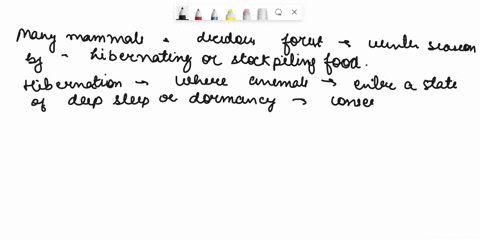 Many mammals . decidous forest → winter season
by - hibernating or stockpiling food.
Hibernation → where animals → enter a state
of deep sleep or dormancy → conser